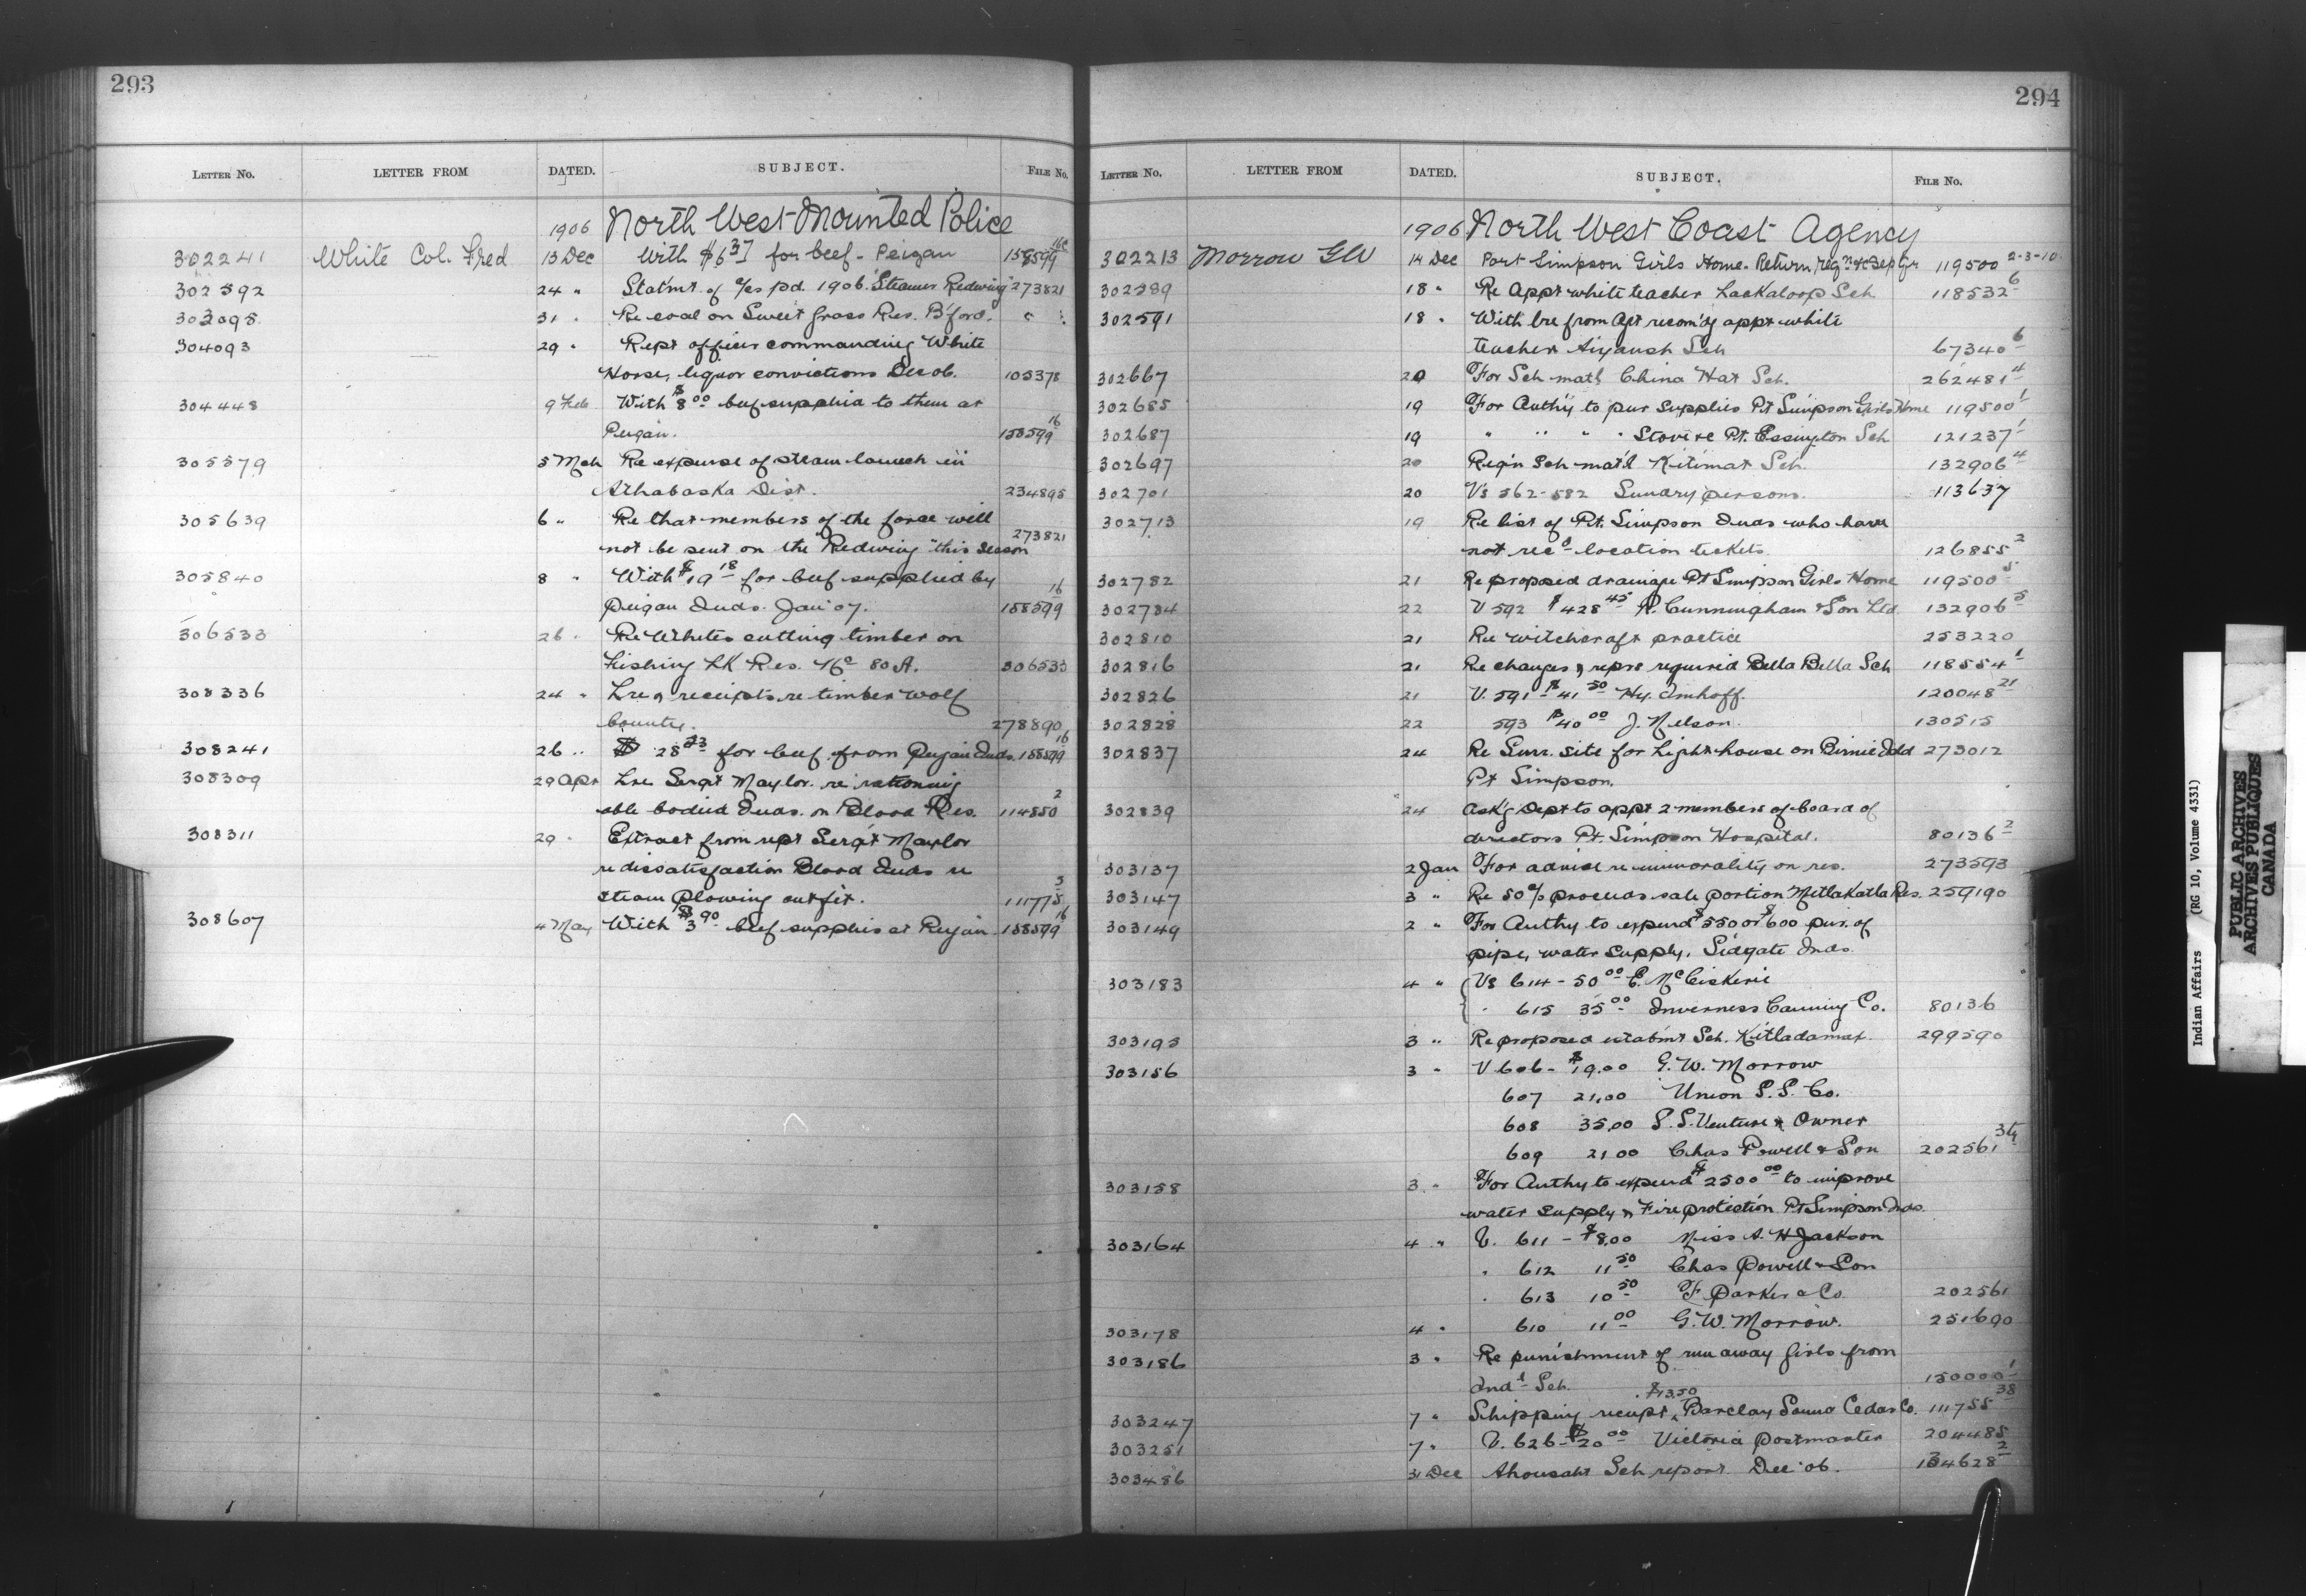 293
LETTER No. LETTER FROM DATED. SUBJECT. FILE No.
1906 North West Mounted Police
302241 White Col. Fred 13 Dec With $6 37 for beef - Peigan 158599 16
302592 24 " Statm't of a/cs pd. 1906. Steamer Redwing 273821
303098 31 " Re coal on Sweet Grass Res. B'ford. " "
304093 29 " Rept officer commanding White
Horse, liquor convictions Dec 06. 105378
304448 9 Feb With $8 00 beef supplied to them at
Peigan. 158599 16
305579 5 Mch Re expense of steam launch in
Athabaska Dist. 234895
305639 6 " Re that members of the force will
not be sent on the "Redwing" this season 273821
305840 8 " With $19 18 for beef supplied by
Peigan Inds. Jan 07. 158599 16
306533 26 " Re Whites cutting timber on
Fishing Lk Res. No 80 A. 306533
308336 24 " Lre & receipts re timber wolf
bounty. 278890
308241 26 " $ 28 23 for beef from Peigan Inds. 158599 16
308309 29 Apr Lre Sergt Maylor re rationing
able bodied Inds. on Blood Res. 114850 2
308311 29 " Extract from rept Sergt Maylor
re dissatisfaction Blood Inds re
steam plowing outfit. 111775 5
308607 4 May With $3 90 beef supplied at Peigan 158599 16
294
LETTER No. LETTER FROM DATED. SUBJECT. FILE No.
1906 North West Coast Agency
302213 Morrow GW 14 Dec Port Simpson Girls Home. Return, 119500 2-3-10
302589 18 " Re Appt white teacher Lackaloop Sch 118532 6
302591 18 " With lre from Agt recom'dg appt white
teacher Aiyansh Sch 67340 6
302667 20 For Sch mat'l China Hat Sch. 262481 4
302685 19 For Auth'y to pur supplies Pt Simpson Girls Home 119500 1
302687 19 " " " " Stove re Pt. Essington Sch 121237 1
302697 20 Req'n Sch mat'l Kitimat Sch. 132906 4
302701 20 Vs 562-582 Sundry persons. 113637
302713 19 Re list of Pt. Simpson Inds who have
not rec'd location tickets. 126855 2
302782 21 Re proposed drainage Pt Simpson Girls Home 119500 5
302784 22 V 592 $428 45 R. Cunningham & Son Ltd 132906 5
302810 21 Re witchcraft practice 253220
302816 21 Re changes & reprs required Bella Bella Sch 118554 1
302826 21 V. 591 $41 50 Hy. Imhoff. 120048 21
302828 22 593 $40 00 J. Nelson. 130515
302837 24 Re Surr. site for Light house on Birnie Isld 273012
Pt Simpson.
302839 24 Ask'g Dept to appt 2 members of board of
directors Pt. Simpson Hospital. 80136 2
303137 2 Jan For advice re immorality on res. 273593
303147 3 " Re 50% proceeds sale portion Metlakatla Res. 259190
303149 2 " For Authy to expend $550 or $600 pur. of
pipe, water supply, Sidgate Inds.
303183 4 " Vs 614 - 50 00 E. McCiskerie
" 615 35 00 Inverness Canning Co. 80136
303193 3 " Re proposed estabm't Sch. Kitladamax. 299590
303156 3 " V 606 - $19.00 G. W. Morrow
607 21.00 Union S.S. Co.
608 35.00 S.S. Venture & Owner
609 21.00 Chas Powell & Son 202561
303158 3 " For Authy to expend $2500 00 to improve
water supply & Fire protection Pt Simpson Inds.
303164 4 " V. 611 - $8.00 Miss A. H Jackson
" 612 11 50 Chas Powell & Son
" 613 10 50 F Parker & Co. 202561
303178 4 " 610 11 00 G. W. Morrow. 251690
303186 3 " Re punishment of run away Girls from
Ind'l Sch. 150000 1
303247 7 " Shipping receipt, $13.50 Barclay Sound Cedar Co. 111755 38
303251 7 " V. 626 - $20 00 Victoria Postmaster 204485
303486 31 Dec Ahousaht Sch report Dec 06. 154628 2
Indian Affairs (RG 10, Volume 4331)
PUBLIC ARCHIVES
ARCHIVES PUBLIQUES
CANADA